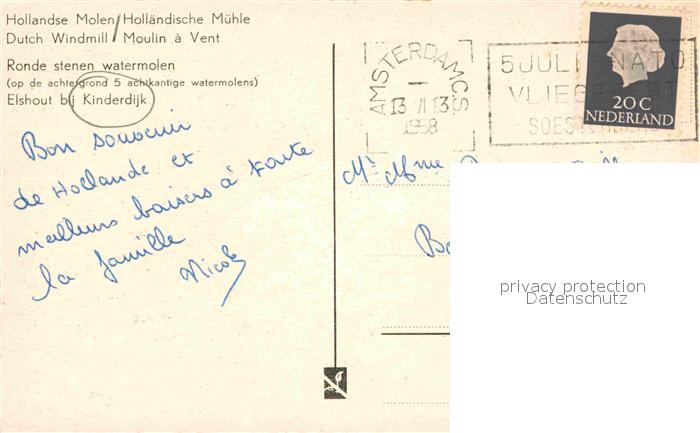 Hollandse Molen/Holländische Mühle
Dutch Windmill/Moulin à Vent
Ronde stenen watermolen
(op de achtergrond 5 achtkantige watermolens)
Elshout bij Kinderdijk
Bon souvenir
de Hollande et
meilleurs baisers à toute
la famille
Nicole
AMSTERDAM C.S
13 VI 13
1958
5 JULI NATO
VLIEGFEEST
SOESTERBERG
20 C
NEDERLAND
Mr Mme
privacy protection
Datenschutz